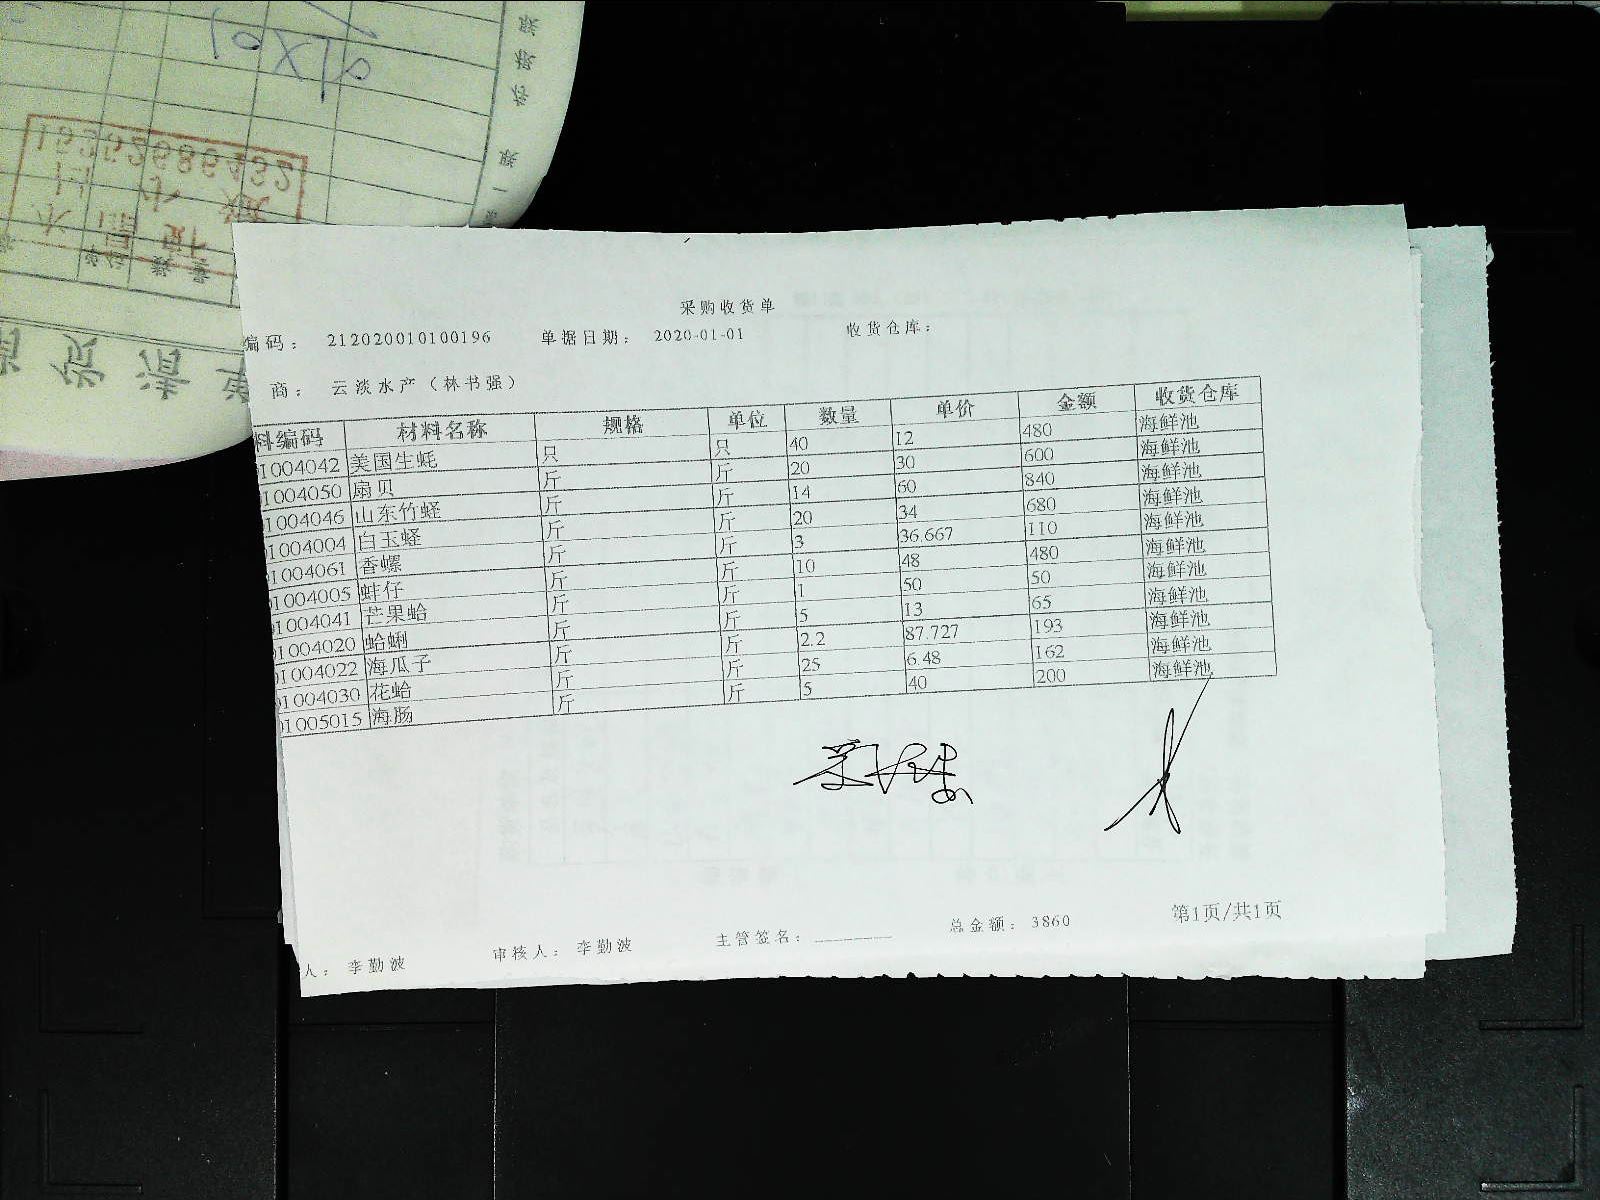 采购收货单
编码： 212020010100196 单据日期： 2020-01-01 收货仓库：
商： 云淡水产（林书强）
料编码 材料名称 规格 单位 数量 单价 金额 收货仓库
1004042 美国生蚝 只 只 40 12 480 海鲜池
1004050 扇贝 斤 斤 20 30 600 海鲜池
1004046 山东竹蛏 斤 斤 14 60 840 海鲜池
1004004 白玉蛏 斤 斤 20 34 680 海鲜池
1004061 香螺 斤 斤 3 36.667 110 海鲜池
1004005 蚌仔 斤 斤 10 48 480 海鲜池
1004041 芒果蛤 斤 斤 1 50 50 海鲜池
1004020 蛤蜊 斤 斤 5 13 65 海鲜池
1004022 海瓜子 斤 斤 2.2 87.727 193 海鲜池
01004030 花蛤 斤 斤 25 6.48 162 海鲜池
01005015 海肠 斤 斤 5 40 200 海鲜池
人： 李勤波 审核人： 李勤波 主管签名： 总金额： 3860 第1页/共1页